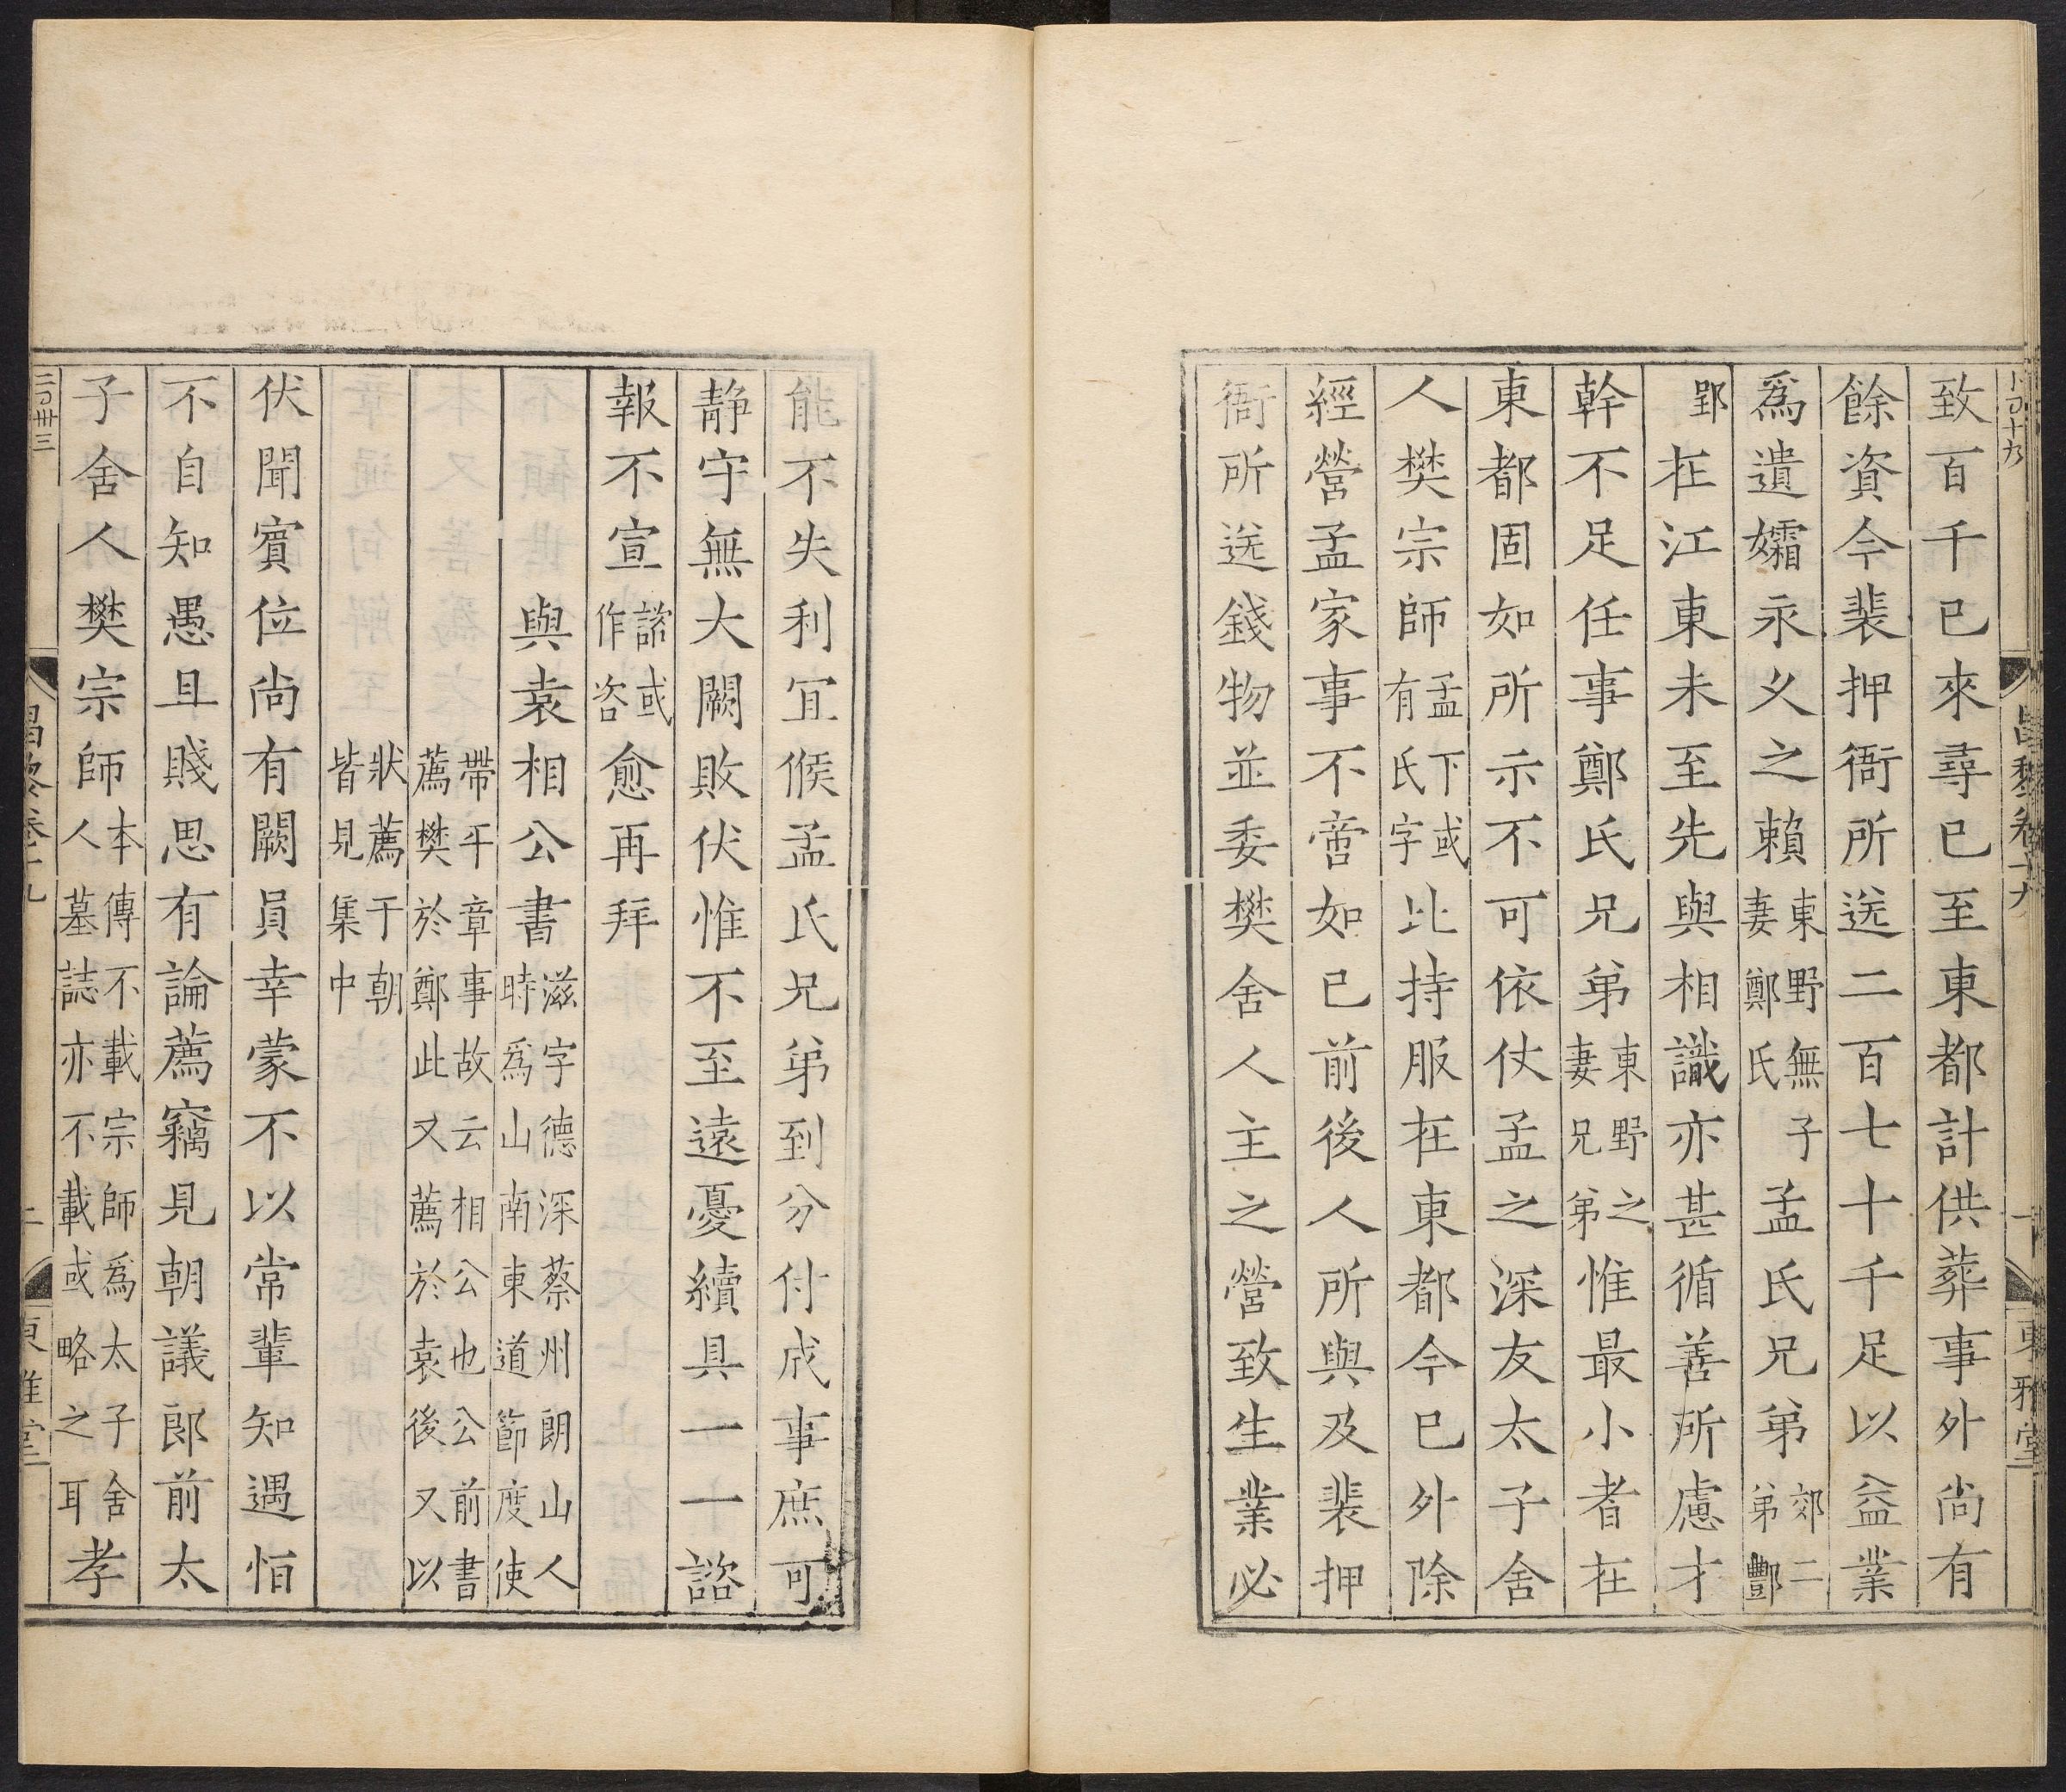 致百千已來尋已至東都計供葬事外尚有
餘資今裴押衙所送二百七十千足以益業
爲遺孀永久之賴東野無子妻鄭氏孟氏兄弟郊二弟酆
郢在江東未至先與相識亦甚循善所慮才
幹不足任事鄭氏兄弟東野之妻兄弟惟最小者在
東都固如所示不可依仗孟之深友太子舍
人樊宗師孟下或有氏字比持服在東都今已外除
經營孟家事不啻如已前後人所與及裴押
衙所送錢物並委樊舍人主之營致生業必
能不失利宜候孟氏兄弟到分付成事庶可
靜守無大闕敗伏惟不至遠憂續具一一諮
報不宣諮或作咨愈再拜
與袁相公書滋字德深蔡州朗山人時爲山南東道節度使
帶平章事故云相公也公前書薦樊於鄭此又薦於袁後又以
狀薦于朝皆見集中
伏聞賓位尚有闕員幸蒙不以常輩知遇恒
不自知愚且賤思有論薦竊見朝議郎前太
子舍人樊宗師本傳不載宗師爲太子舍人墓誌亦不載或略之耳孝
昌黎卷十九
東雅堂